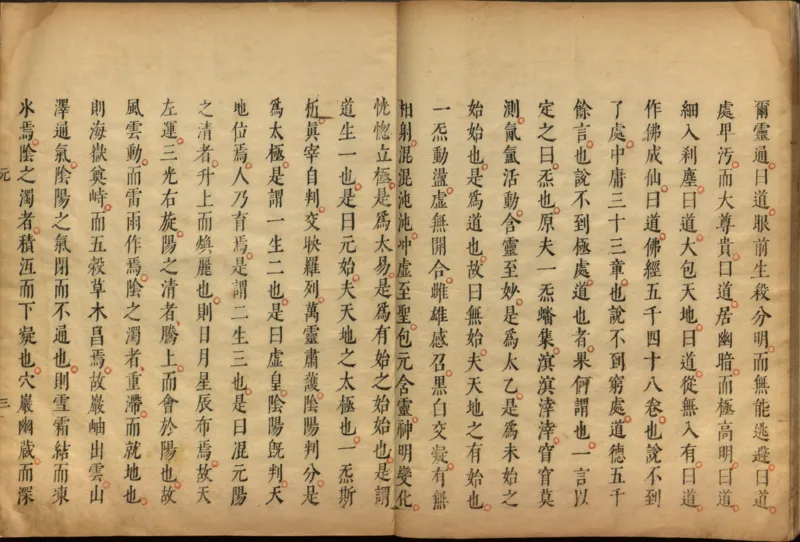 爾靈通曰道眼前生殺分明而無能逃避曰道
處卑汚而大尊貴曰道居幽暗而極高明曰道
細入刹塵曰道大包天地曰道從無入有曰道
作佛成仙曰道佛經五千四十八卷也說不到
了處中庸三十三章也說不到窮處道德五千
餘言也說不到極處道也者果何謂也一言以
定之曰炁也原夫一炁蟠集溟溟滓滓窅窅莫
測氤氳活動含靈至妙是爲太乙是爲未始之
始始也是爲道也故曰無始夫天地之有始也
一炁動盪虛無開合雌雄感召黑白交凝有無
相射混混沌沌冲虛至聖包元含靈神明變化
恍惚立極是爲太易是爲有始之始始也是謂
道生一也是曰元始夫天地之太極也一炁斯
析眞宰自判交映羅列萬靈肅護陰陽判分是
爲太極是謂一生二也是曰虛皇陰陽旣判天
地位焉人乃育焉是謂二生三也是曰混元陽
之清者升上而煥麗也則日月星辰布焉故天
左運三光右旋陽之清者騰上而會於陽也故
風雲動而雷雨作焉陰之濁者重滯而就地也
則海嶽奠峙而五穀草木昌焉故巖岫出雲山
澤通氣陰陽之氣閉而不通也則雪霜結而凍
氷焉陰之濁者積沍而下凝也穴巖幽藏而深
元
三